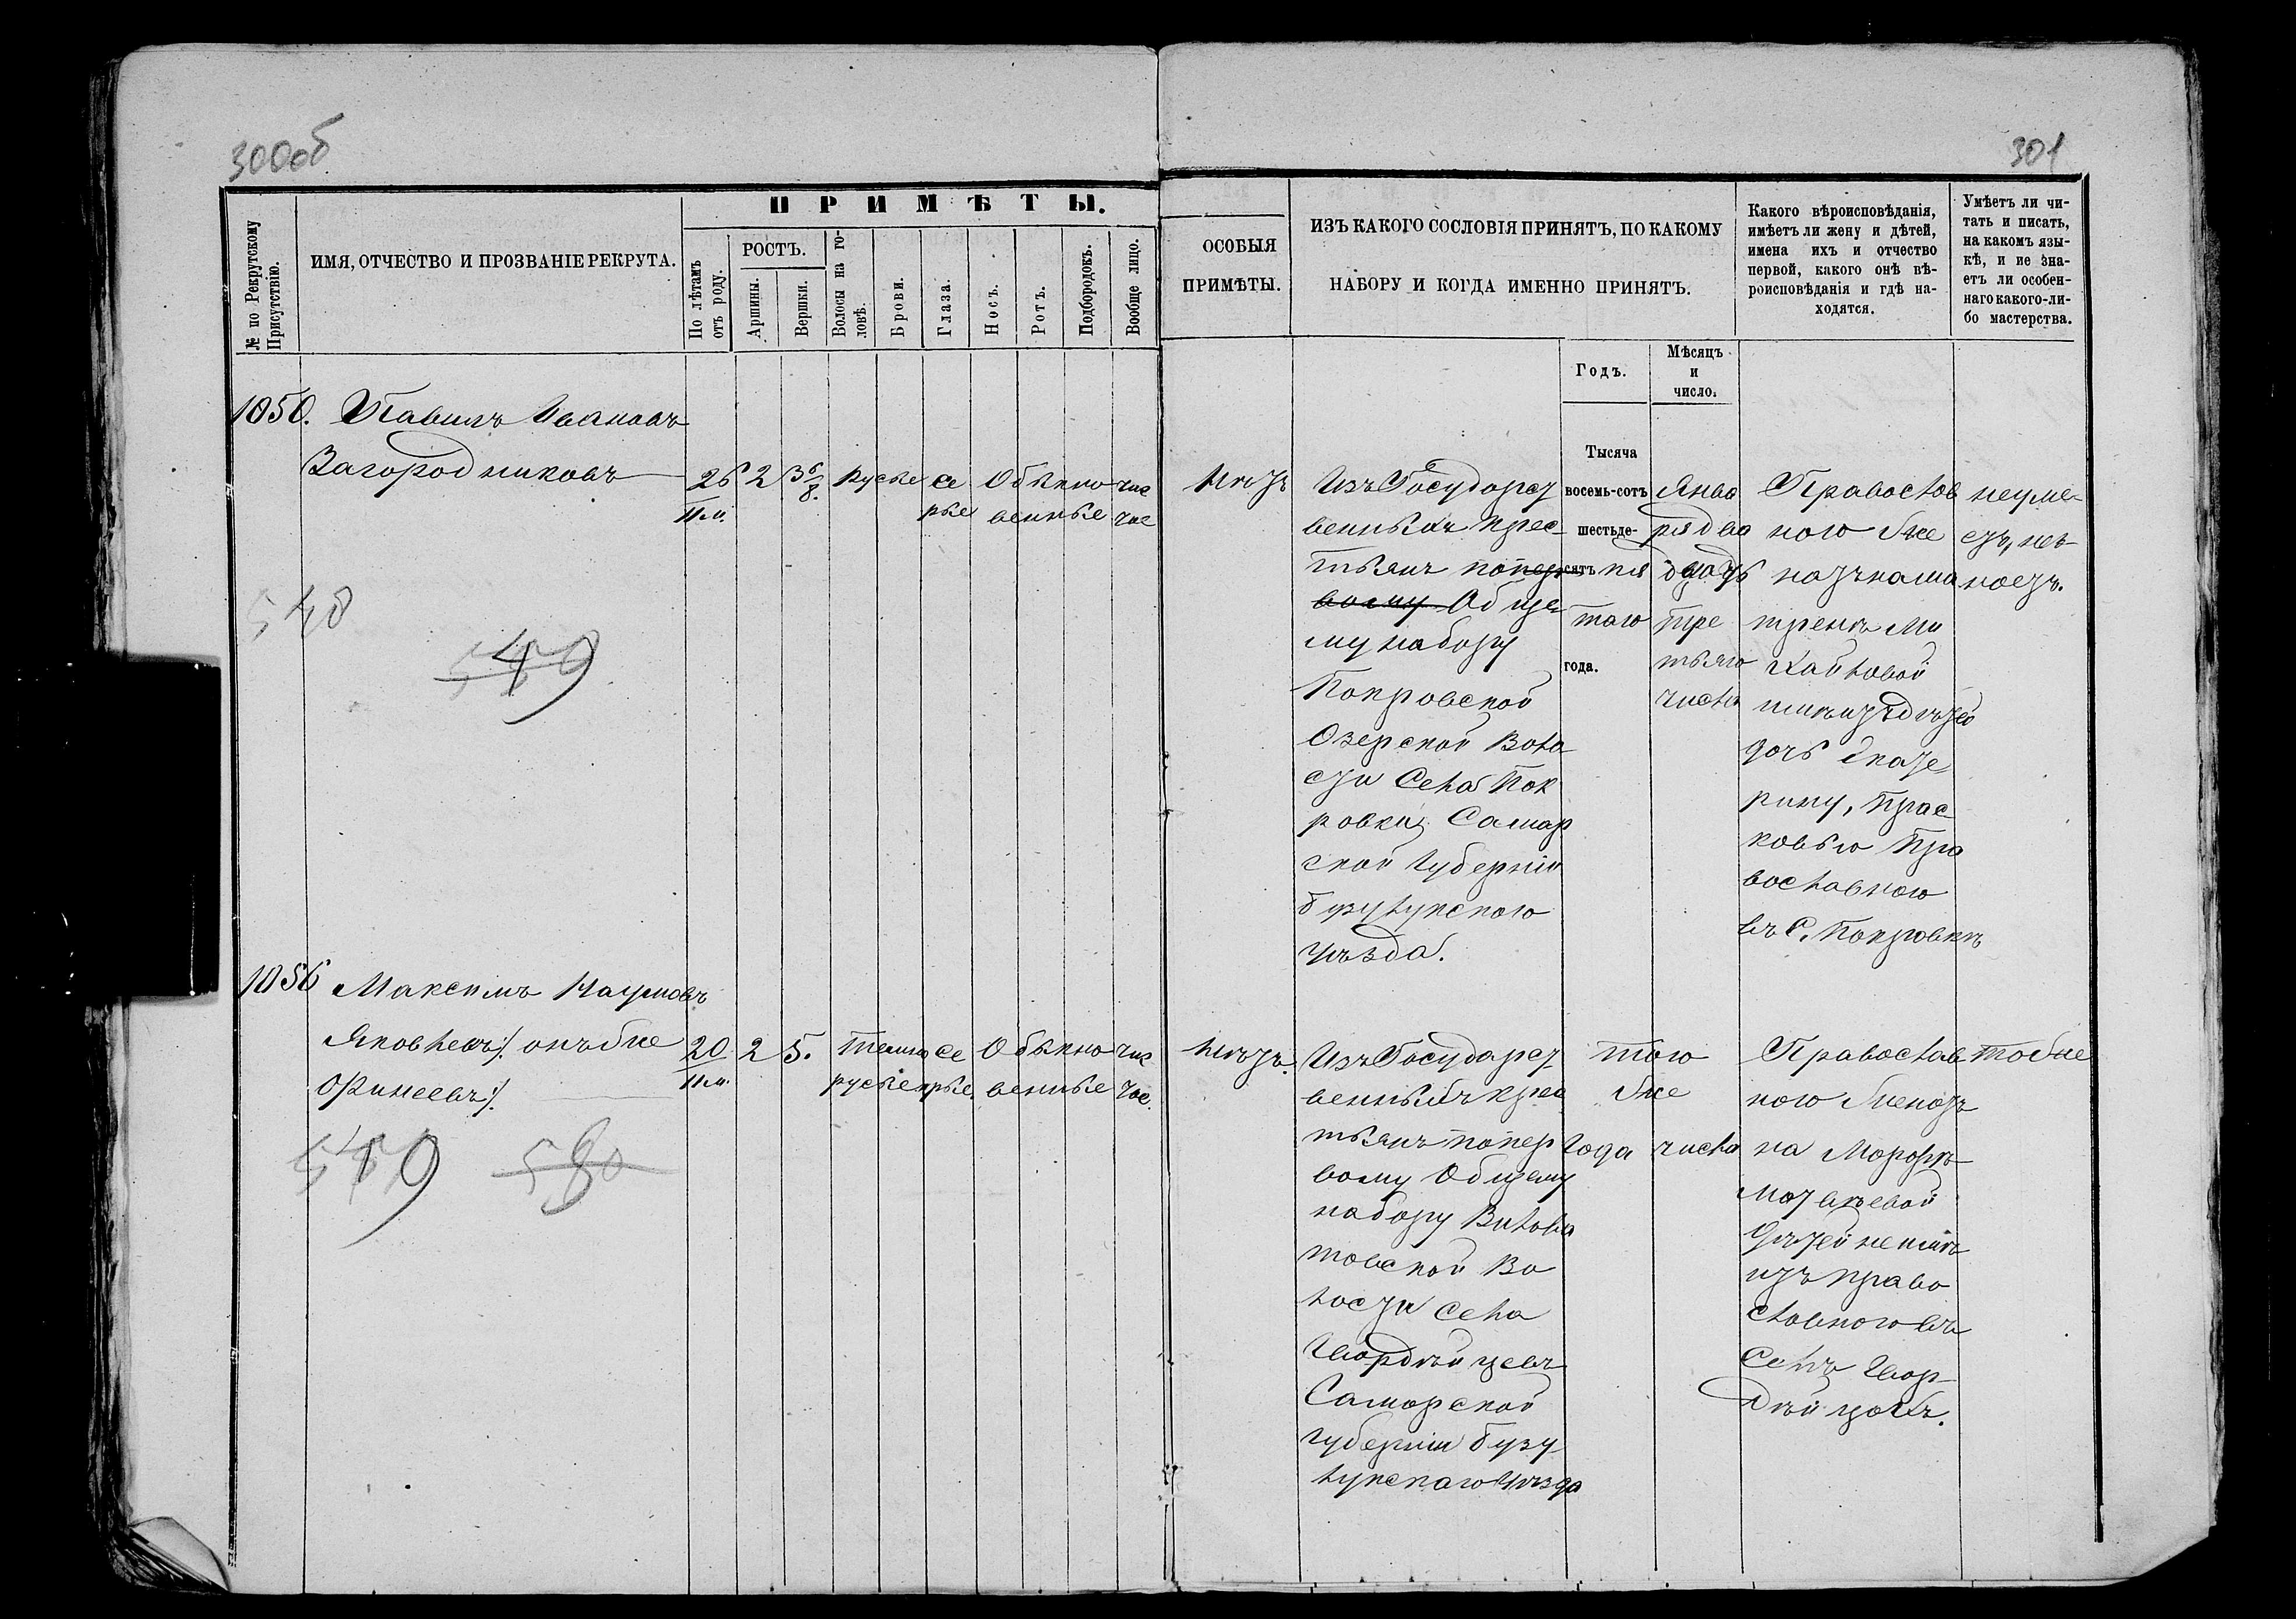 300об
301
ПРИМѢТЫ.
№ по Рекрутскому Присутствію.
ИМЯ, ОТЧЕСТВО И ПРОЗВАНІЕ РЕКРУТА.
По лѣтамъ отъ роду.
РОСТЪ.
Аршины.
Вершки.
Волосы на головѣ.
Брови.
Глаза.
Носъ.
Ротъ.
Подбородокъ.
Вообще лицо.
ОСОБЫЯ
ПРИМѢТЫ.
ИЗЪ КАКОГО СОСЛОВІЯ ПРИНЯТЪ, ПО КАКОМУ
НАБОРУ И КОГДА ИМЕННО ПРИНЯТЪ.
Годъ.
Мѣсяцъ
и
число.
Какого вѣроисповѣданія,
имѣетъ ли жену и дѣтей,
имена ихъ и отчество
первой, какого онѣ вѣ-
роисповѣданія и гдѣ на-
ходятся.
Умѣетъ ли чи-
тать и писать,
на какомъ язы-
кѣ, и не зна-
етъ ли особен-
наго какого-ли-
бо мастерства.
1050. Павилъ Ивановъ
Загородниковъ
26
11 м.
2
3 6/8.
Русые
се
рые
Обыкно
венные
чис
тое
нѣтъ
Изъ Государст
венныхъ крес-
тьянъ по пер
вому Обще-
му набору
Покровской
Озерской Воло
сти Села Пок
ровки, Самар
ской Губерніи
бузулукского
уѣзда.
Тысяча
восемь-сотъ
шестьде-
сятъ пя
таго
года.
Янва
ря два
дцать
тре
тьяго
числа
Православ
ного же
натъ на ма
трене Ми
хайловой
имѣетъ дѣтей
дочь Екате-
рину, Прас
ковью Пра
вославного
въ С. Покровкѣ
неуме-
етъ, не
ноетъ.
548
549
1056 Максимъ Наумовъ
Яковлевъ /: онъ же
Офинеевъ :/
20
11 м.
2
5.
темно
русые
се
рые.
Обыкно
венные
чис
тое.
нѣтъ.
Изъ Государст
венныхъ крес
тьянъ по пер
вому Общему
набору Вилова
товской Во
лости села
Гвордѣйцевъ
Самарской
губерніи бузу
лукскаго уѣзда
того
же
Года числа
Православ
ного женатъ
на
Дѣтей не имѣ
етъ право
славного въ
Селѣ Гвор-
дѣйцахъ.
тоже
549
580